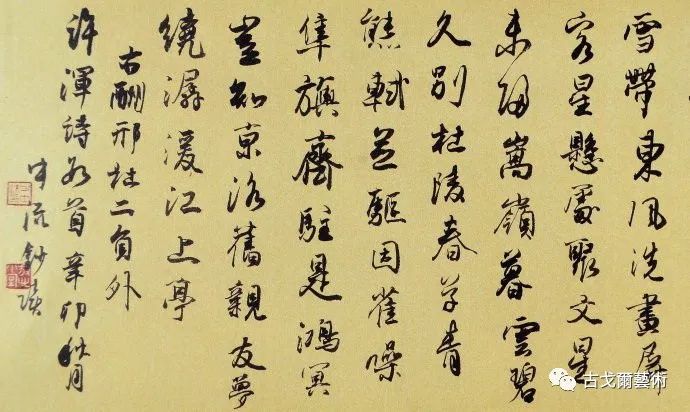 雪帶東風洗畫屏
客星懸處聚文星
未歸嵩嶺暮雲碧
久別杜陵春草青
熊軾並驅因雀噪
隼旟齊駐是鴻冥
豈知京洛舊親友夢
繞潺湲江上亭
右酬邢杜二員外
許渾詩首辛卯秋月
鈔
古戈爾藝術